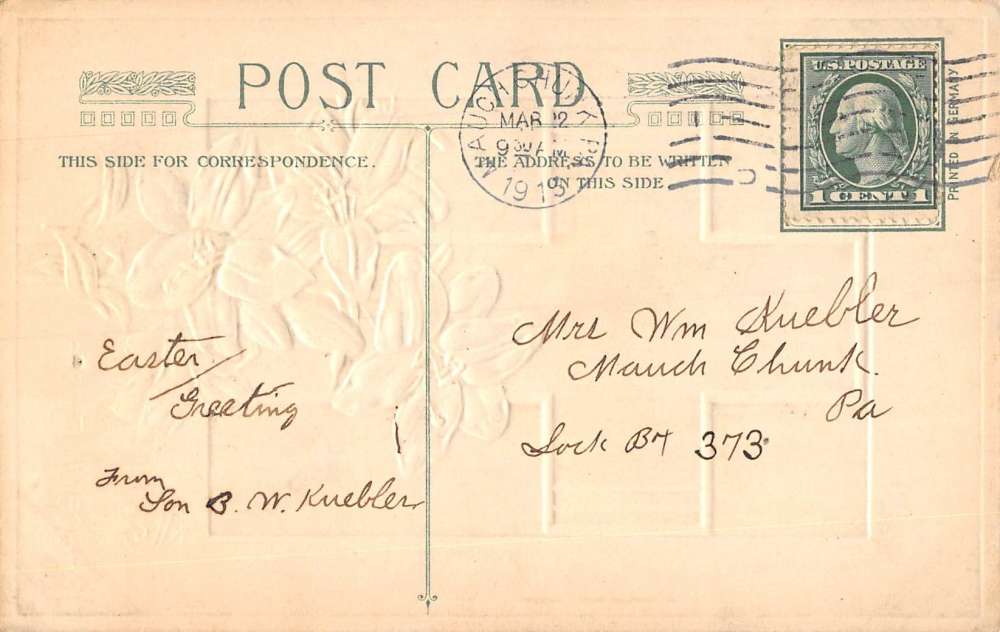 POST CARD
THIS SIDE FOR CORRESPONDENCE.
THE ADDRESS TO BE WRITTEN
ON THIS SIDE
MAUCH CHUNK PA
MAR 22
9 30 AM
1913
U.S. POSTAGE
1 CENT 1
PRINTED IN GERMANY
Easter
Greeting
From
Son B. W. Kuebler
Mrs Wm Kuebler
Mauch Chunk.
Pa
Lock Bx 373